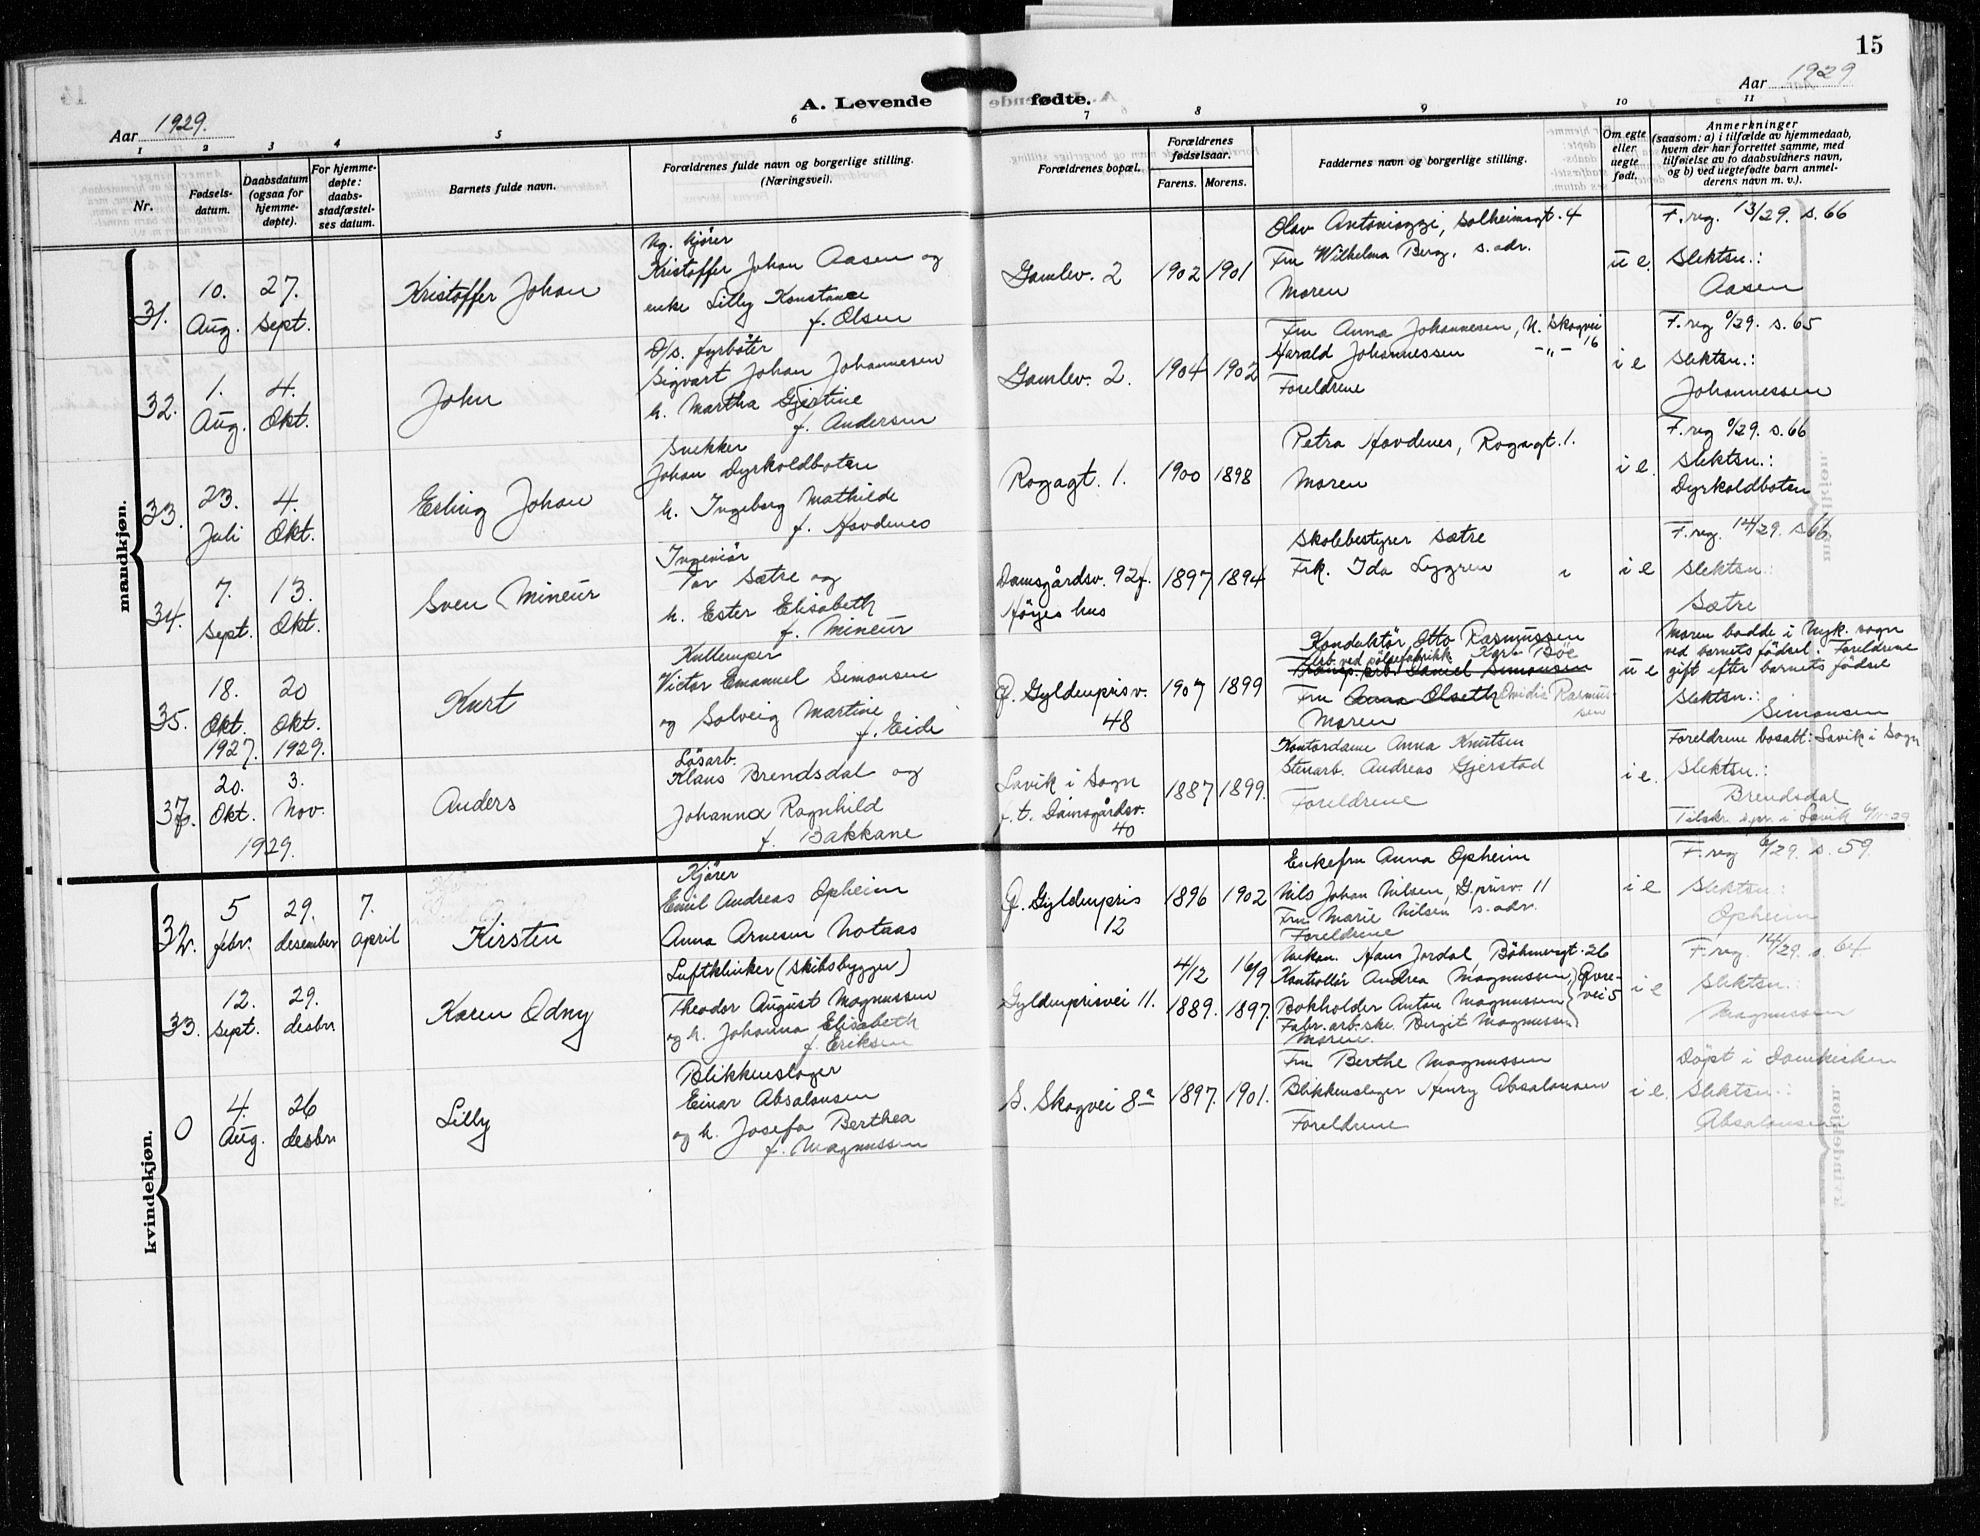 15
Aar 1929.
A. Levende fødte.
Aar 1929
1 2 3 4 5 6 7 8 9 10 11
Nr.
Fødsels-
datum.
Daabsdatum
(ogsaa for
hjemme-
døpte).
For hjemme-
døpte:
daabs-
stadfæstel-
ses datum.
Barnets fulde navn.
Forældrenes fulde navn og borgerlige stilling.
(Næringsvei).
Forældrenes bopæl.
Forældrenes
fødselsaar.
Farens. Morens.
Faddernes navn og borgerlige stilling.
Om egte
eller
uegte
født.
Anmerkninger
(saasom: a) i tilfælde av hjemmedaab,
hvem der har forrettet samme, med
tilføielse av to daabsvidners navn,
og b) ved uegtefødte barn anmel-
derens navn m. v.).
mandkjøn.
31.
10.
Aug.
27.
Sept.
Kristoffer Johan
Ug. kjører
Kristoffer Johan Aasen og
enke Lilly Konstance
f. Olsen
Gamlev. 2
1902 1901
Olav Antoniazzi, Solheimsgt. 4
Fru Wilhelma Berg, s. adr.
Moren
u e.
F. reg. 13/29. s. 66
Slektsn.:
Aasen
32.
1.
Aug.
4.
Okt.
John
D/s. fyrbøter
Sigvart Johan Johannesen
h. Martha Gjertine
f. Andersen
Gamlev. 2.
1904 1902
Fru Anna Johannesen, N. Skogvei
16
Harald Johannessen -"-
Foreldrene
i e
F. reg 9/29. s. 65
Slektsn.:
Johannessen
33.
23.
Juli
4.
Okt.
Erling Johan
Snekker
Johan Dyrkoldboten
h. Ingeborg Mathilde
f. Hovdenes
Rogagt. 1.
1900 1898
Petra Hovdenes, Rogagt. 1.
Moren
i e.
F. reg 9/29. s. 66
Slektsn.:
Dyrkoldboten
34.
7.
Sept.
13.
Okt.
Sven Mineur
Ingeniør
Tor Sætre og
h. Ester Elisabeth
f. Mineur
Damsgårdsv. 92f.
Høyes hus
1897 1894
Skolebestyrer Sætre
Frk. Ida Lyggren
i e
F. reg. 14/29. s 66
Slektsn:
Sætre
35.
18.
Okt.
1927.
20
Okt.
1929.
Kurt
Kullemper
Victor Emanuel Simonsen
og Solveig Martine
f. Eide
Ø. Gyldenprisv.
48
1907 1899
Konduktør Otto Rasmussen
Arb. ved pølsefabrikk Karl Bøe
Simonsen
Fru Anna Olseth Ovidia Rasmus-
sen
Moren
u e
Moren bodde i Nyk. sogn
ved barnets fødsel. Foreldrene
gift efter barnets fødsel
Slektsn.:
Simonsen
37.
20.
Okt.
3.
Nov.
1929.
Anders
Løsarb.
Klaus Brendsdal og
Johanna Ragnhild
f. Bakkane
Lavik i Sogn
f. t. Damsgårdsv.
40
1887 1899.
Kontordame Anna Knutsen
Stenarb. Andreas Gjerstad
Foreldrene
i e.
Foreldrene bosatt: Lavik i Sogn
Slektsn.:
Brendsdal
Tilskr. spr. i Lavik 6/11-29.
kvindekjøn.
32.
5
febr.
29.
desember
7.
April
Kirsten
Kjører
Emil Andreas Opheim
Anna Arnesen Notnas
Ø. Gyldenpris
12
1896 1902
Enkefru Anna Opheim
Nils Johan Nilsen, G.prisv. 11
Fru Marie Nilsen s. adr.
Foreldrene
i e
F. reg 6/29. s. 59.
Slektsn.:
Opheim
33.
12.
Sept.
29.
desbr.
Karen Odny
Luftklinker (skibsbygger)
Theodor August Magnussen
og h. Johanna Elisabeth
f. Eriksen
Gyldenprisvei 11.
4/12
1889.
16/9
1897.
Mekan. Hans Jordal Bøhmergt. 26
Kontrollør Andrea Magnussen, Øvre-
Bokholder Anton Magnussen vei 5
Fabr. arb.ske. Birgit Magnussen
Moren.
i e
F. reg. 14/29. s. 64
Slektsn.:
Magnussen
0
4.
Aug.
26
desbr
Lilly
Blikkenslager
Einar Absalonsen
og h. Josefa Berthea
f. Magnussen
S. Skogvei 8a
1897. 1901.
Fru Berthe Magnussen
Blikkenslager Henry Absalonsen
Foreldrene
i e.
Døpt i Domkirken
Slektsn.:
Absalonsen